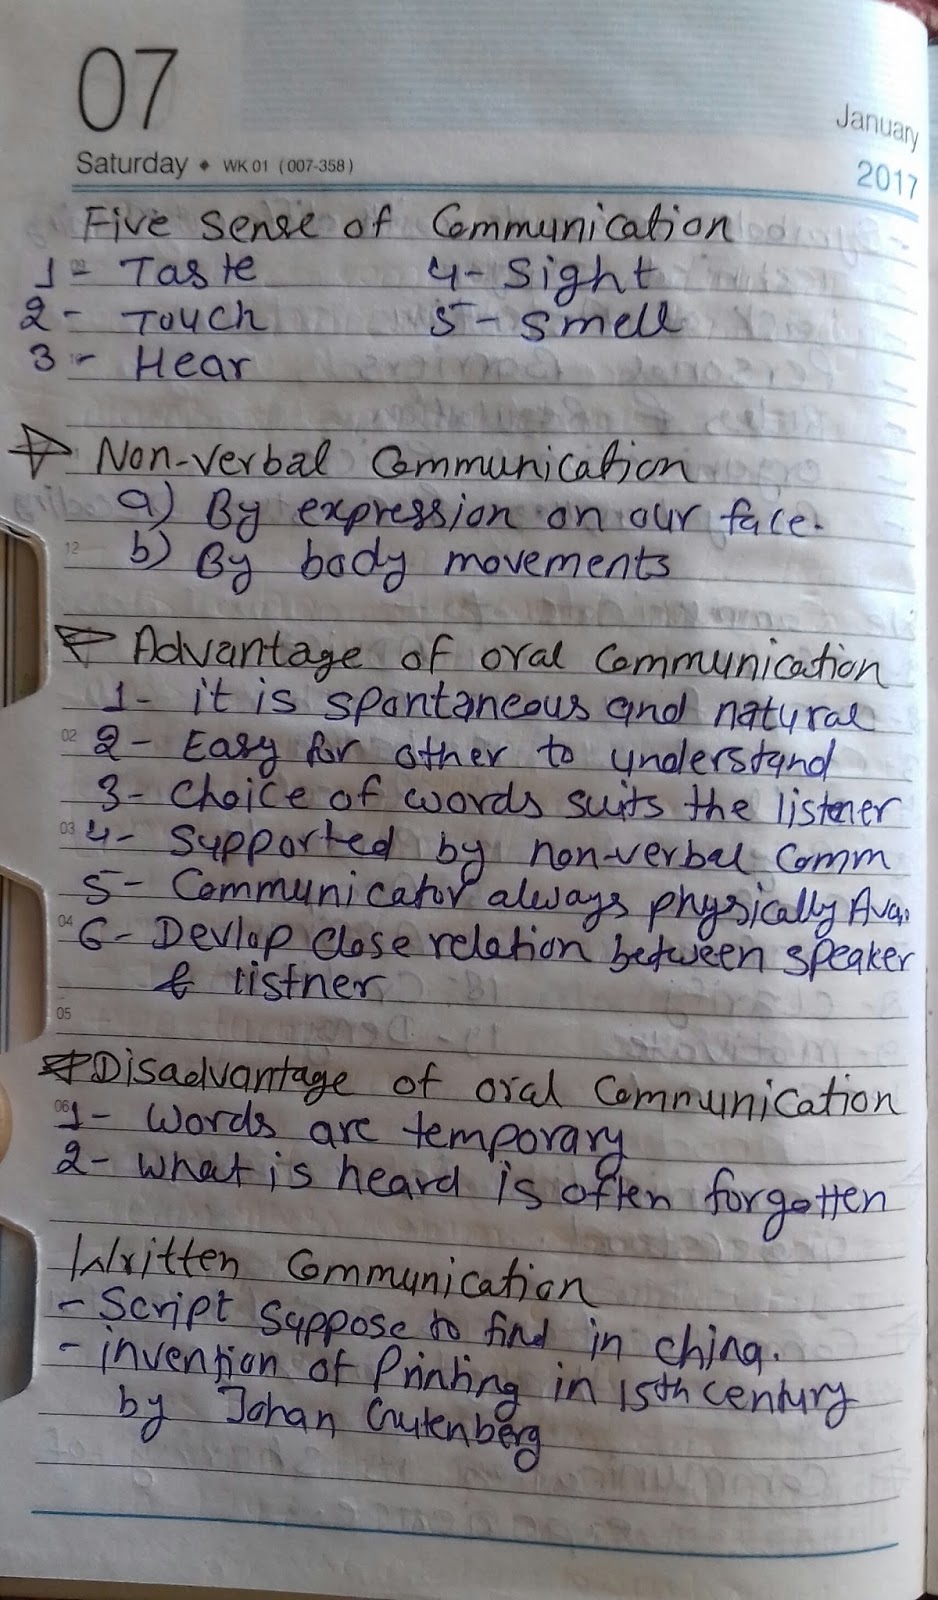 07
January
Saturday • WK 01 (007-358)
2017
Five Sense of Communication
1- Taste 4- Sight
2- Touch 5- Smell
3- Hear
Non-verbal Communication
a) By expression on our face.
12
b) By body movements
Advantage of oral Communication
1- it is spontaneous and natural
02
2- Easy for other to understand
3- Choice of words suits the listener
03
4- Supported by non-verbal Comm
5- Communicator always physically Ava.
04
6- Devlop close relation between speaker
& listner
05
Disadvantage of oral Communication
06
1- Words are temporary
2- What is heard is often forgotten
Written Communication
- Script suppose to find in china.
- invention of Printing in 15th century
by Johan Gutenberg